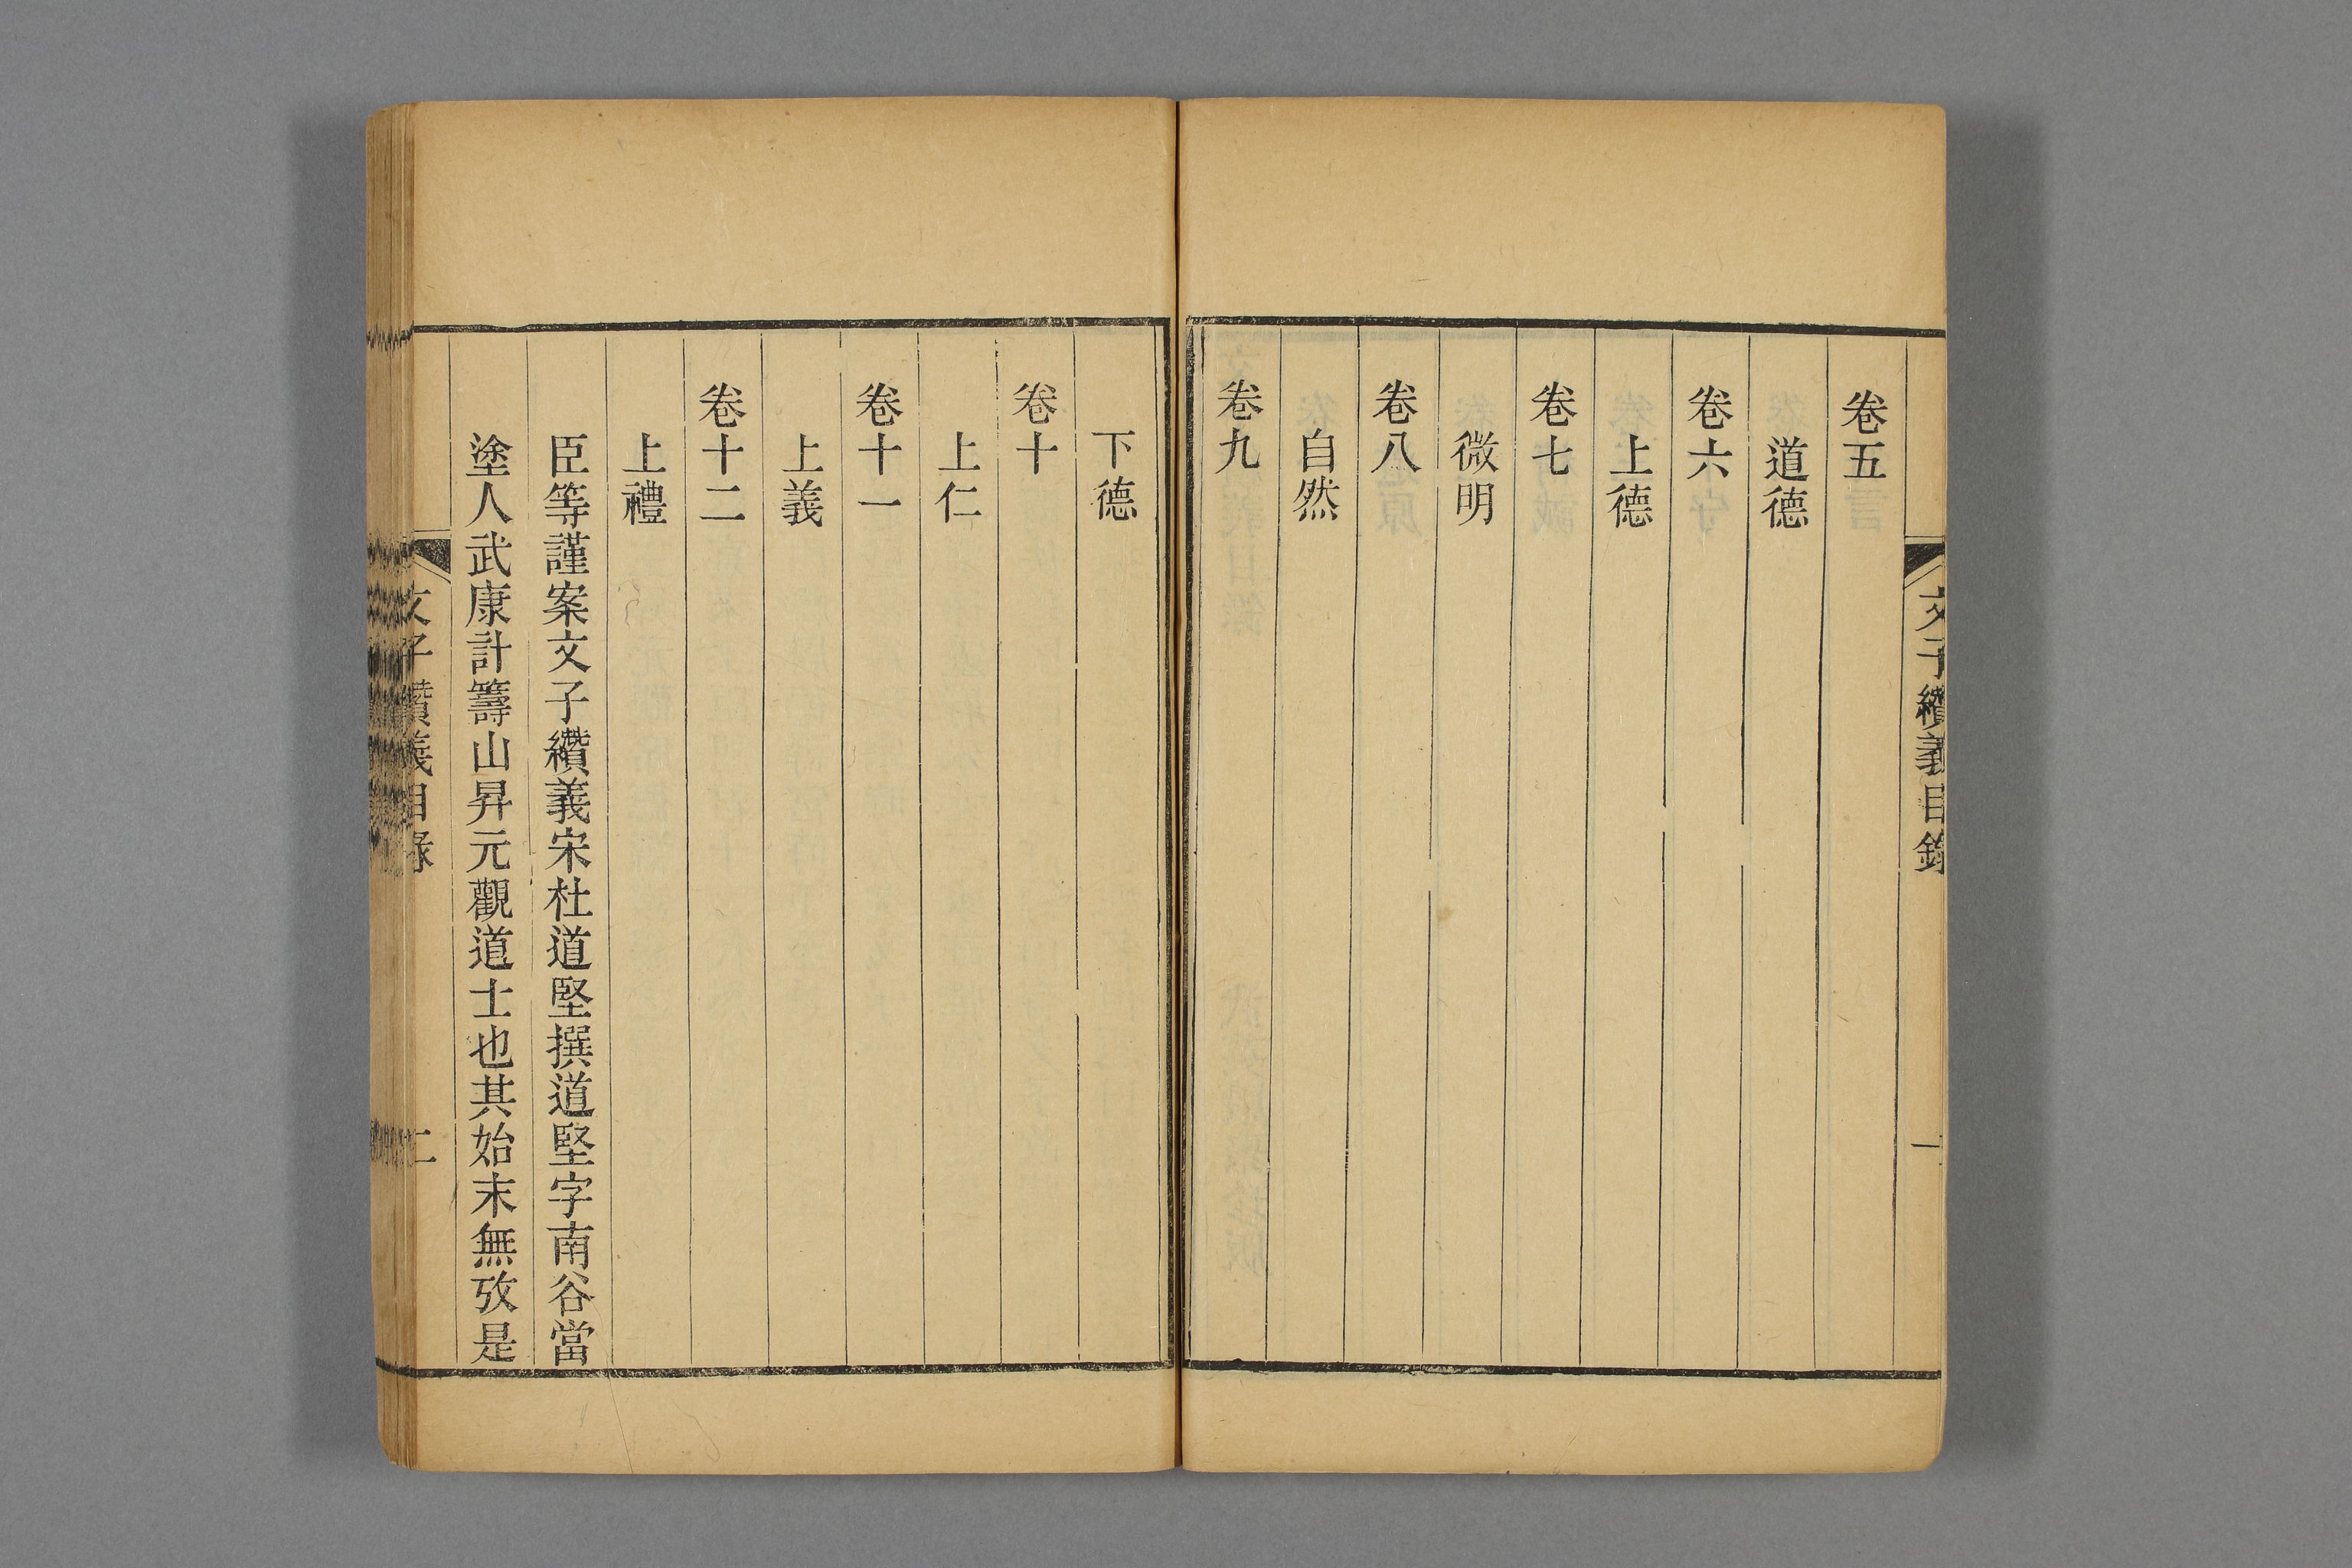 文子纘義目錄
一
卷五
道德
卷六
上德
卷七
微明
卷八
自然
卷九
下德
卷十
上仁
卷十一
上義
卷十二
上禮
臣等謹案文子纘義宋杜道堅撰道堅字南谷當
塗人武康計籌山昇元觀道士也其始末無攷是
文子纘義目錄
二